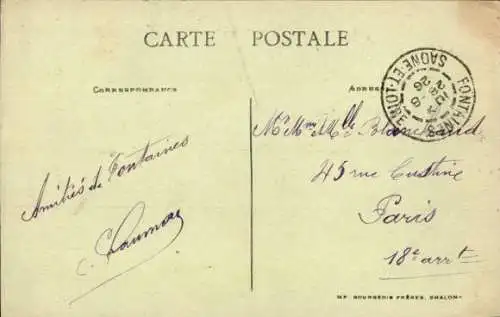 CARTE POSTALE
CORRESPONDANCE
ADRES
FONTAINES
SAONE-ET-LOIRE
Amitiés de Fontaines
Mr Mme Mlle Blanchard
45 rue Custine
Paris
18e arrt
IMP. BOURGEOIS FRÈRES, CHALON-